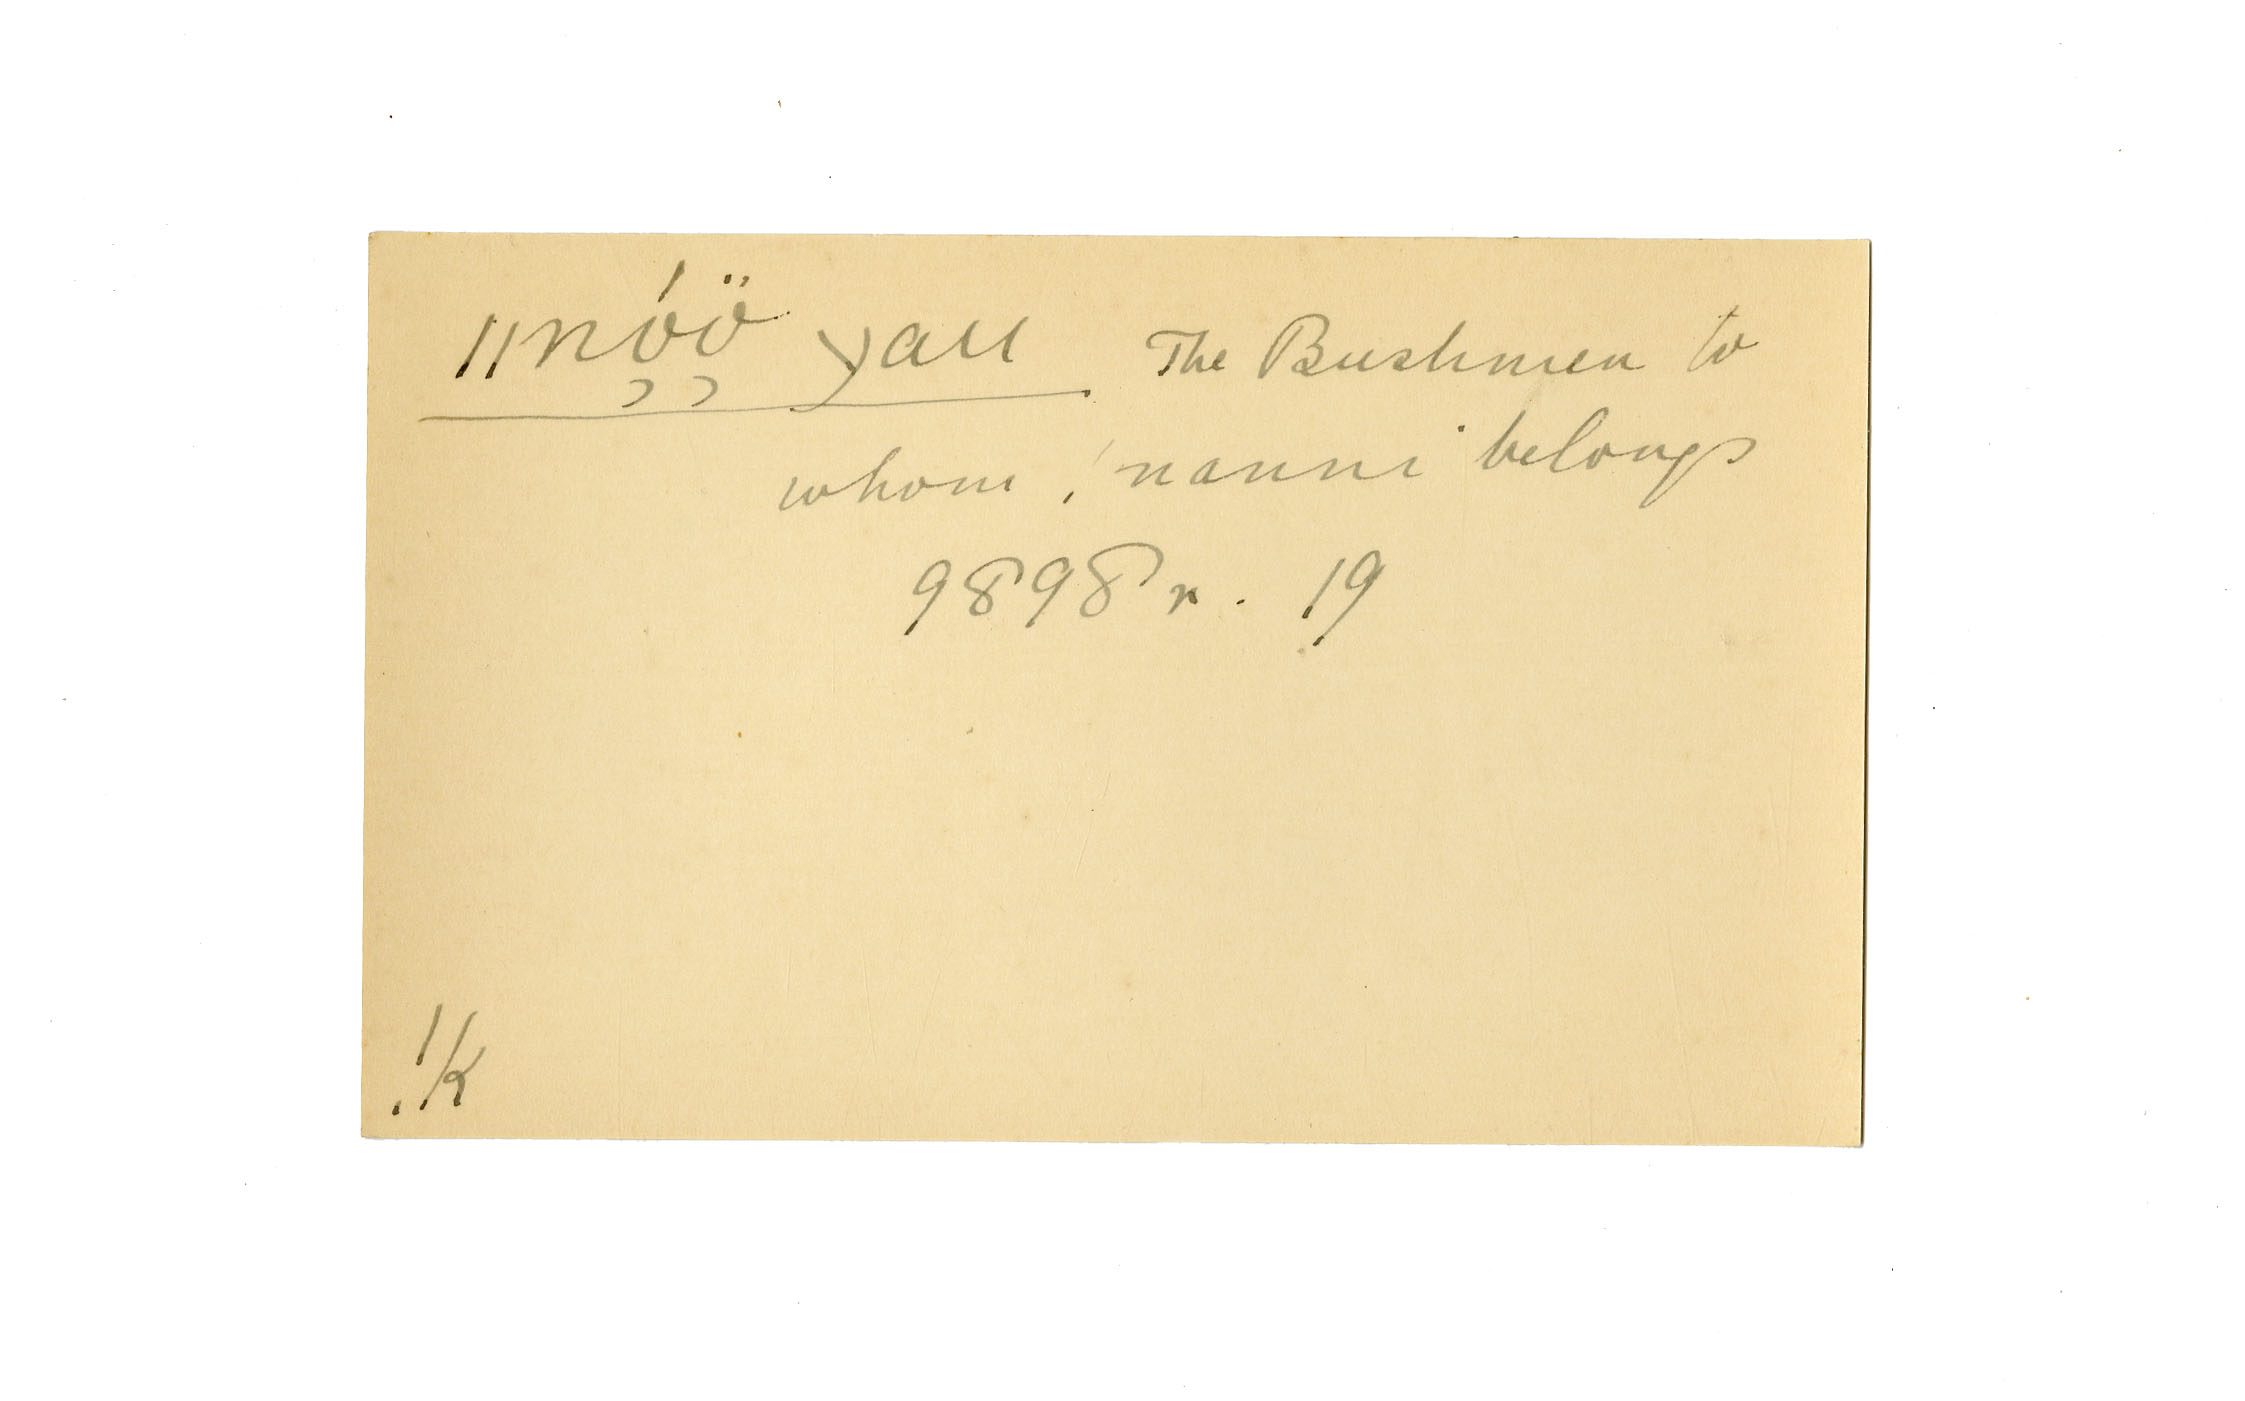 ǁnó̦ö̦ yau The Bushmen to
whom ! nanni belongs
9898 r. 19
!k